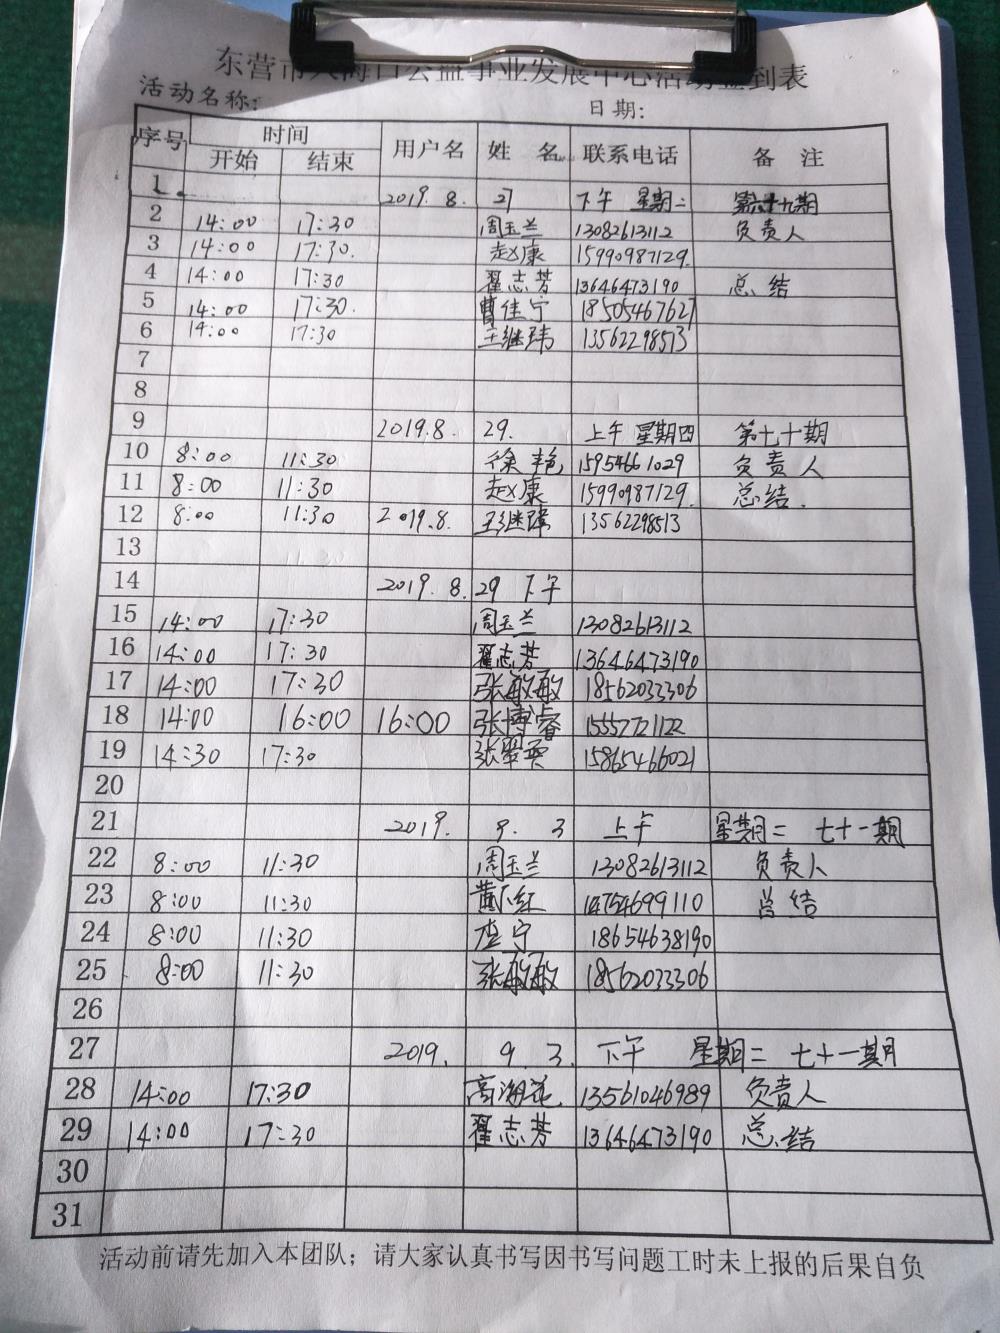 东营市大海口公益事业发展中心活动签到表
活动名称: 日期:
序号 时间 用户名 姓 名 联系电话 备 注
开始 结束
1 2019.8. 27 下午 星期二 第六十九期
2 14:00 17:30 周玉兰 13082613112 负责人
3 14:00 17:30. 赵康 15990987129.
4 14:00 17:30 翟志芳 13646473190 总结
5 14:00 17:30. 曹佳宁 18505467627
6 14:00 17:30 王继玮 13562298513
7
8
9 2019.8. 29. 上午 星期四 第七十期
10 8:00 11:30 徐艳 15954661029 负责人
11 8:00 11:30 赵康 15990987129. 总结.
12 8:00 11:30 2019.8. 王继玮 13562298513
13
14 2019.8. 29 下午
15 14:00 17:30 周玉兰 13082613112
16 14:00 17:30 翟志芳 13646473190
17 14:00 17:30 张敏敏 18562033306
18 14:00 16:00 16:00 张博睿 15557721122
19 14:30 17:30 张 15865466021
20
21 2019. 9. 3 上午 星期二 七十一期
22 8:00 11:30 周玉兰 13082613112 负责人
23 8:00 11:30 红 14754699110 总结
24 8:00 11:30 宁 18654638190
25 8:00 11:30 张敏敏 18562033306
26
27 2019. 9 3. 下午 星期二 七十一期
28 14:00 17:30 高海花 13561046989 负责人
29 14:00 17:30 翟志芳 13646473190 总结
30
31
活动前请先加入本团队；请大家认真书写因书写问题工时未上报的后果自负